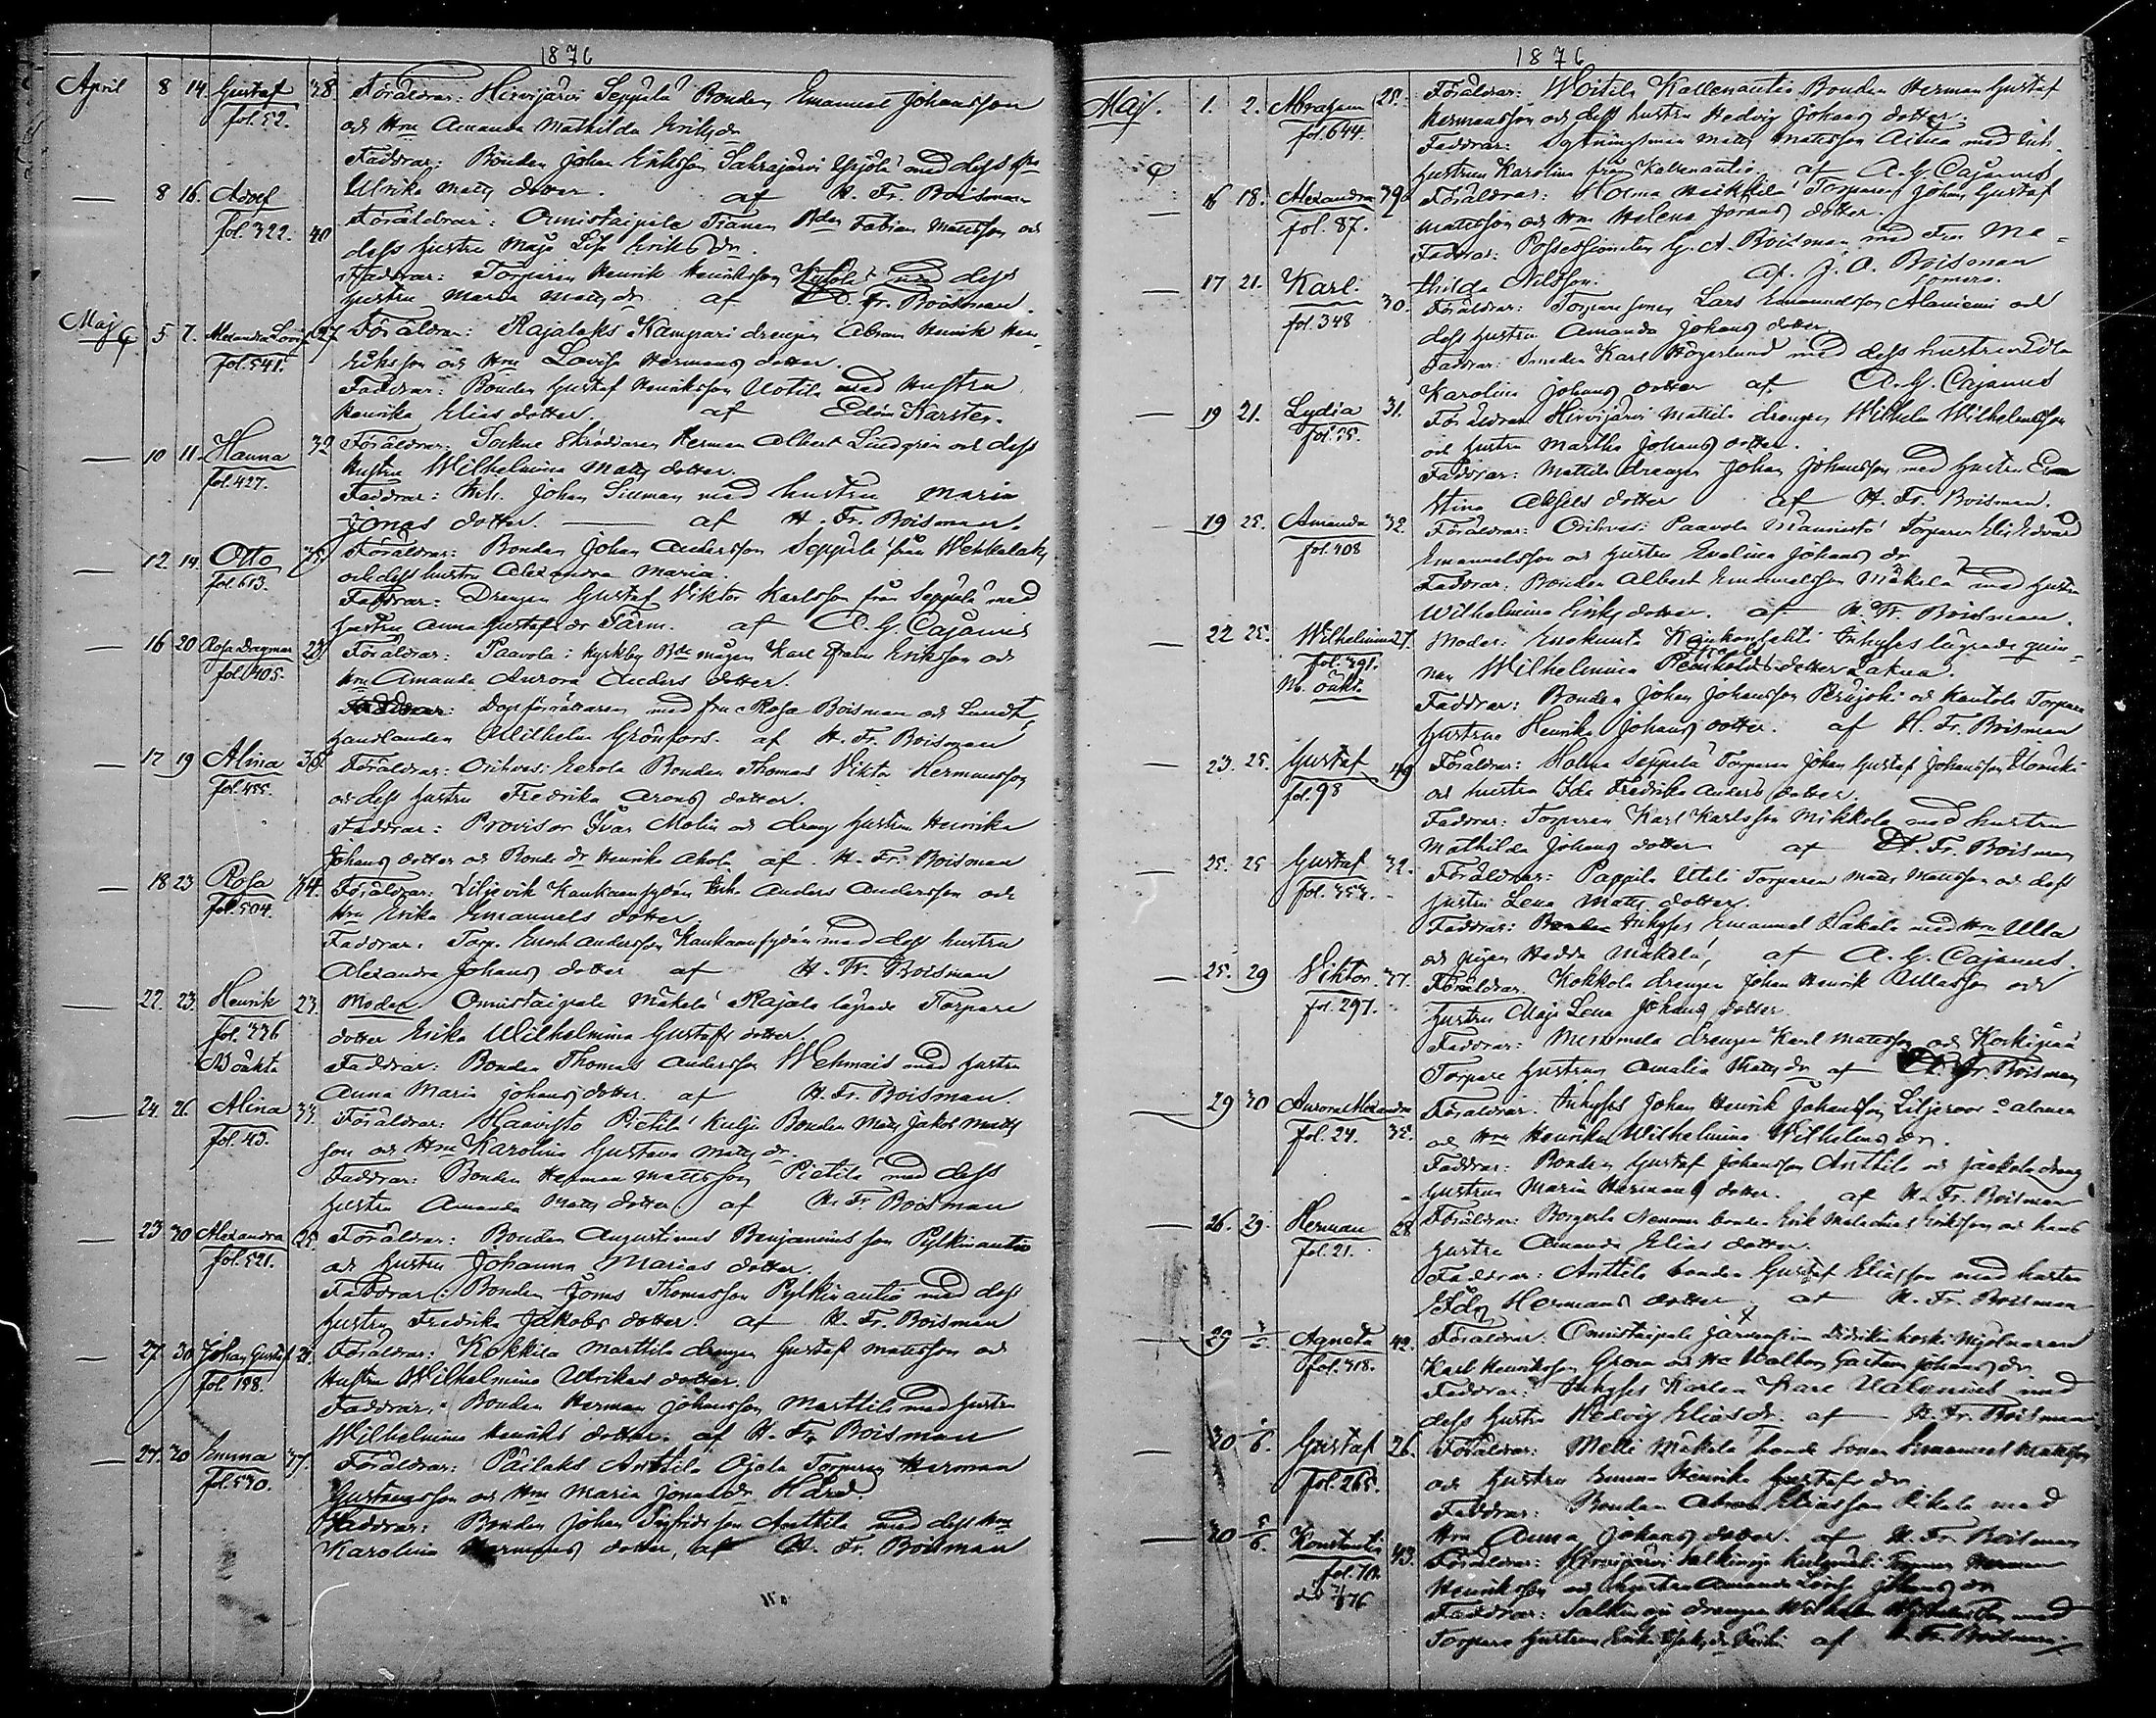 1876
April 8 14. Gustaf 38 Föräldrar: Hirvijärvi Seppälä Bonden Emanuel Johansson
fol. 52. och Hru Amanda Mathilda Eriksdr
Faddrar: Bonden Johan Eriksson Sakrajärvi Yrjölä med dess hru
Ulrika Matts dotter. af H. Fr. Boisman
— 8 16. Adolf
fol. 322. 40 Föräldrar: Onnistaipale Bdn Fabian Mattsson och
dess hustru Maja Lisa Eriks dr.
Faddrar: Torparen Henrik Henriksson med dess
hustru Maria Matts dr af H. Fr. Boisman.
Maj 5 7. Alexandra Lovisa 27 Föräldrar: Rajalaks Kampari drengen Abram Henrik Hen-
fol. 541. riksson och Hru Lovisa Hermans dotter.
Faddrar: Bonden Gustaf Henriksson Uotila med Hustru
Henrika Elias dotter. af Edvin Karsten.
— 10 11. Hanna 32 Föräldrar: Sockne Skräddaren Herman Albert Lindgren och dess
fol. 427. Hustru Wilhelmina Matts dotter.
Faddrar: Inh. Johan Silman med hustru Maria
Jonas dotter. — af H. Fr. Boisman.
— 12 14. Otto 35 Föräldrar: Bonden Johan Andersson Seppälä från Wekkalaks
fol. 613. och dess hustru Alexandra Maria.
Faddrar: Drengen Gustaf Viktor Karlsson från Seppälä med
hustru Anna Gustafs dr Tärm. af A. G. Cajanus
— 16 20 Rosa Dagmar 23 Föräldrar: Paavola i kyrkby Bde mågen Karl Eriksson och
fol. 405. Hru Amanda Aurora Anders dotter.
Faddrar: Dopförrättaren med fru Rosa Boisman och Lundt,
Handlanden Wilhelm Grönfors. af H. Fr. Boisman
— 17 19 Alina 35 Föräldrar: Orihvesi Eerola Bonden Thomas Viktor Hermansson
fol. 455. och dess hustru Fredrika Arons dotter.
Faddrar: Provisor Ivar Molin och dreng hustrun Henrika
Johans dotter och Bonde dr Henrika Ahola af H. Fr. Boisman
— 18 23 Rosa 34. Föräldrar: Liljevik Kankaansydän Inh. Anders Andersson och
fol. 504. Hru Erika Emanuels dotter.
Faddrar: Torp. Enok Andersson Kankaansydän med dess hustru
Alexandra Johans dotter af H. Fr. Boisman
— 22. 23. Henrik 23. Moder Onnistaipale Mäkelä Rajala lägrade Torpare
fol. 336 dotter Erika Wilhelmina Gustafs dotter.
B oäkta Faddrar: Bonden Thomas Andersson Wehmais med hustru
Anna Maria Johans dotter. af H. Fr. Boisman.
— 24. 26. Alina 33. Föräldrar: Haavisto Pietilä Kulju Bonden Matts Jakob Matts
fol. 43. son och Hru Karolina Gustava Matts dr.
Faddrar: Bonden Herman Mattsson Pietilä med dess
hustru Amanda Matts dotter. af H. Fr. Boisman
— 23 30 Alexandra 25. Föräldrar: Bonden Augustinus Benjaminsson Pylkinautio
fol. 521. och hustru Johanna Marias dotter.
Faddrar: Bonden Joms Thomasson Pylkinautio med dess
hustru Fredrika Jakobs dotter. af H. Fr. Boisman
— 27. 30. Johan Gustaf 21. Föräldrar: Kokkila Marttila drengen Gustaf Mattsson och
fol. 198. Hustru Wilhelmina Ulrikas dotter.
Faddrar: Bonden Herman Johansson Marttila med hustru
Wilhelmina Henriks dotter. af H. Fr. Boisman
— 27. 30 Emma 37. Föräldrar: Päilaks Anttila Ojala Torparen Herman
fol. 570. Gustavsson och Hru Maria Jonasdr Hård.
Faddrar: Bonden Johan Sigfridsson Anttila med dess Hru
Karolina Hermans dotter, af H. Fr. Boisman
1876
Maj. 1. 2. Abraham 28. Föräldrar: Woitila Kallenautio Bonden Herman Gustaf
fol. 644. Hermansson och dess hustru Hedvig Johans dotter.
Faddrar: Sytningsman Matts Mattsson Aitua med Inh.
hustrun Karolina från Kallenautio. af A. G. Cajanus
— 16 18. Alexandra 39 Föräldrar: Holma Heikkilä Torparen Johan Gustaf
fol. 87. Mattsson och Hru Helena Jorans dotter.
Faddrar: Possessionaten G. A. Boisman med Fru Ma-
thilda Nilsson. af J. A. Boisman
— 17 21. Karl. Somero.
fol. 348 30. Föräldrar: Torpare sonen Lars Emanuelsson Alaniemi och
dess hustru Amanda Johans dotter
Faddrar: Smeden Karl Högerlund med dess hustru Edla
Karolina Johans dotter af A. G. Cajanus
— 19 21. Lydia 31. Föräldrar: Hirvijärvi Mattila drengen Wilhelm Wilhelmsson
fol. 55. och hustru Martha Johans dotter.
Faddrar: Mattila drengen Johan Johansson med hustru Eva
Stina Aksels dotter af H. Fr. Boisman.
— 19 25. Amanda 32. Föräldrar: Orihvesi Paavola Männistö Torparen Elis Edvard
fol. 408 Emanuelsson och hustru Evelina Johans dr
Faddrar: Bonden Albert Emanuelsson Mäkelä med hustru
Wilhelmina Eriks dotter. af H. Fr. Boisman.
— 22 25. Wilhelmina 27. Moder: Enokunta Kaukonsahti Inhyses lägrade quin-
fol. 391. nan Wilhelmina Reinholds dotter Lakua.
B. oäkt. Faddrar: Bonden Johan Johansson Peräjoki och Kantola Torpare
hustrun Henrika Johans dotter. af H. Fr. Boisman
— 23. 25. Gustaf 49 Föräldrar: Holma Seppälä Torparen Johan Gustaf Johansson
fol. 98 och hustru Ida Fredrika Anders dotter.
Faddrar: Torparen Karl Karlsson Mikkola med hustru
Mathilda Johans dotter af H. Fr. Boisman
— 25. 25 Gustaf 32. Föräldrar: Pappila Uteli Torparen Matts Mattsson och dess
fol. 353. hustru Lena Matts dotter.
Faddrar: Inhyses Emanuel Hakala med Hru Ulla
och pigan Hedda Mäkelä, af A. G. Cajanus.
— 25. 29 Viktor 37. Föräldrar. Kokkola drengen Johan Henrik Ullasson och
fol. 297. hustru Maja Lena Johans dotter.
Faddrar: Mommela drengen Karl Mattsson och Korkipää
Torpare hustrun Amalia Matts dr af H. Fr. Boisman
— 29 30 Aurora Alexandra Föräldrar. Inhyses Johan Henrik Johansson Liljeroos
fol. 24. 35. och Hru Henrika Wilhelmina Wilhelms dr.
Faddrar: Bonden Gustaf Johansson Anttila och Jaakola dreng
hustrun Maria Hermans dotter. af H. Fr. Boisman
— 26. 29. Herman 28 Föräldrar: Borgerla Nemmo bonden Erik Erikson och hans
fol. 21. hustru Amanda Elias dotter.
Faddrar: Anttila bonden Gustaf Eliasson med hustru
Ida Hermans dotter, af H. Fr. Boisman
— 29 Agneta 42. Föräldrar. Onnistaipale Järvensivu Didrikinkoski Mjölnaren
fol. 318. Karl Henriksson Gran och Hru Johans dr.
Faddrar: Inhyses Karlen Karl Valenius med
dess hustru Hedvig Elias dr. af H. Fr. Boisman
— 30 6. Gustaf 26. Föräldrar: Melli Mäkelä bonde sonen Emanuel Mattsson
fol. 265. och hustru Emma Henrika Gustafs dr
Faddrar: Bonden Abram Eliasson Pikala med
Hru Anna Johans dotter. af H. Fr. Boisman
— 30 5/6. Konstantin 43. Föräldrar: Hirvijärvi Torparen Herman
fol. 70. Henriksson och hustru Amanda Lovisa Johans dr
Faddrar: drengen Wilhelm Wilhelmsson med
Torpare hustrun Erika af H. Fr. Boisman